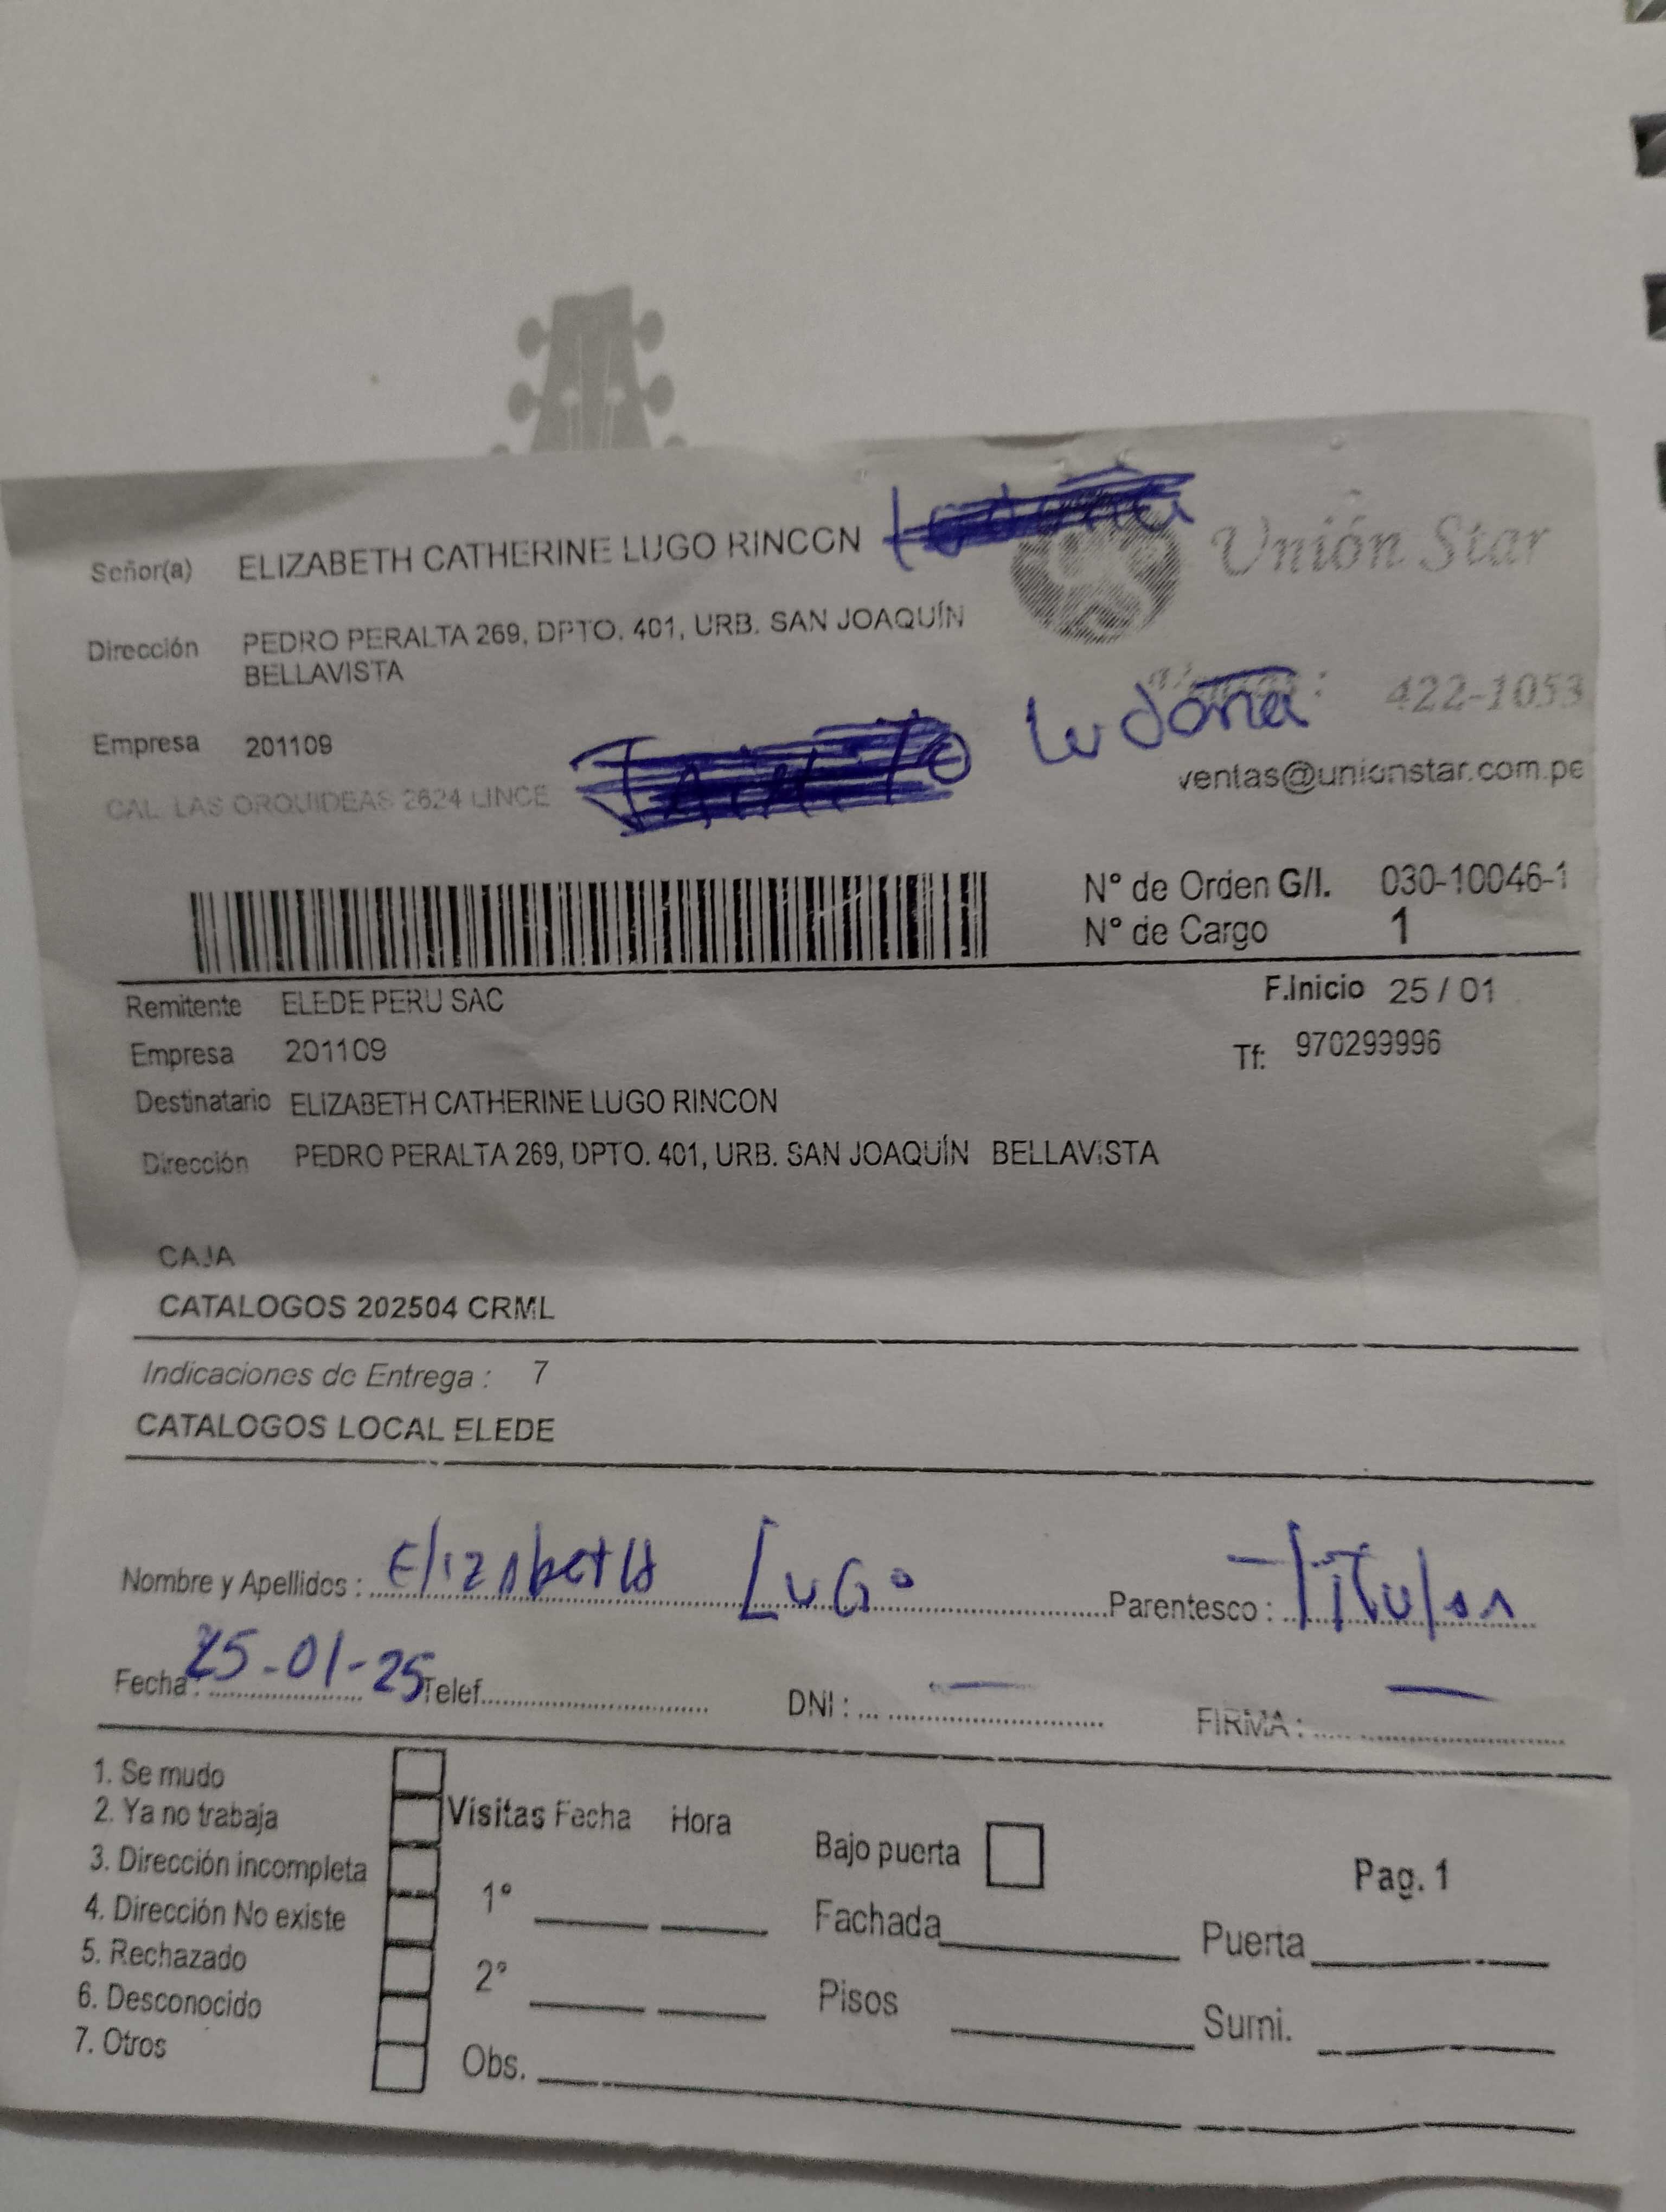 Señor(a) ELIZABETH CATHERINE LUGO RINCON
Unión Star
Dirección PEDRO PERALTA 269, DPTO. 401, URB. SAN JOAQUÍN
BELLAVISTA
422-1053
Ludoña
Empresa 201109
ventas@unionstar.com.pe
CAL. LAS ORQUIDEAS 2624 LINCE
N° de Orden G/I. 030-10046-1
N° de Cargo 1
Remitente ELEDE PERU SAC
F.Inicio 25 / 01
Empresa 201109
Tf: 970299996
Destinatario ELIZABETH CATHERINE LUGO RINCON
Dirección PEDRO PERALTA 269, DPTO. 401, URB. SAN JOAQUÍN BELLAVISTA
CAJA
CATALOGOS 202504 CRML
Indicaciones de Entrega : 7
CATALOGOS LOCAL ELEDE
Nombre y Apellidos : Elizabeth Lugo Parentesco : Titular
Fecha : 25-01-25 Telef. DNI : — FIRMA : —
1. Se mudo
2. Ya no trabaja
3. Dirección incompleta
4. Dirección No existe
5. Rechazado
6. Desconocido
7. Otros
Visitas Fecha Hora
1°
2°
Obs.
Bajo puerta
Pag. 1
Fachada Puerta
Pisos Sumi.